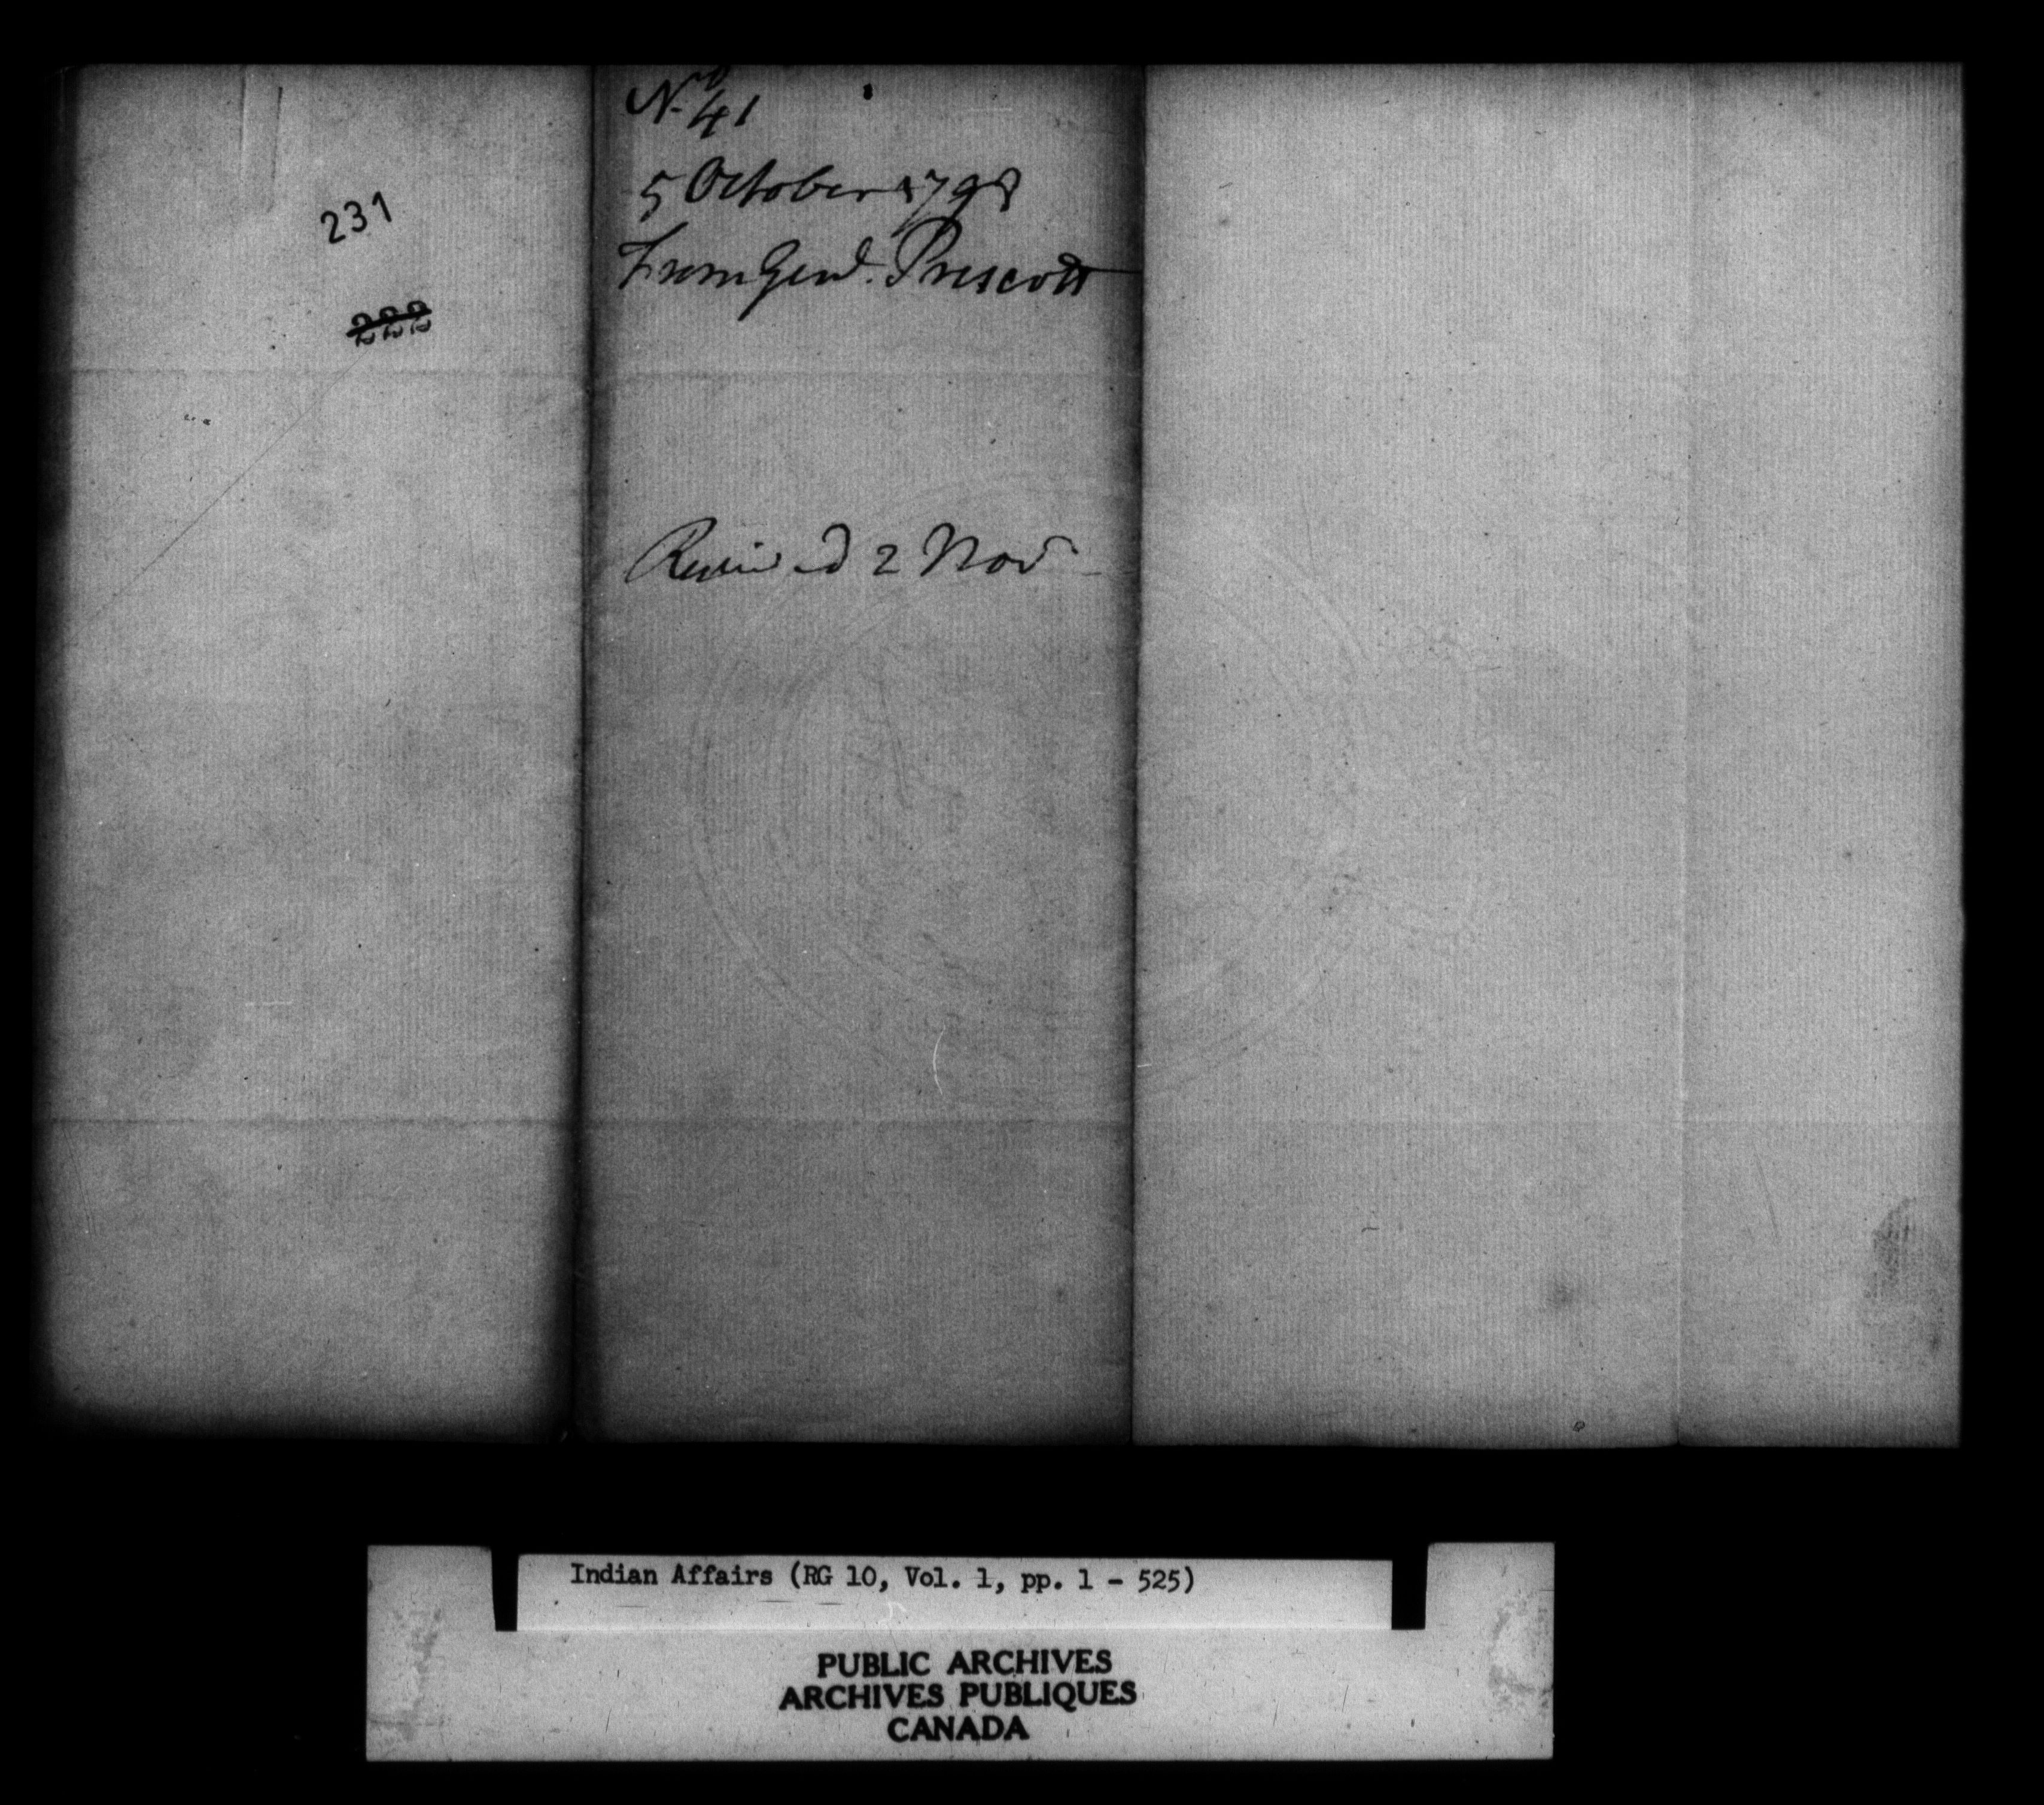 231
222
No 41
5 October 1798
From Genl. Prescott
Received 2 Nov
Indian Affairs (RG 10, Vol. 1, pp. 1 - 525)
PUBLIC ARCHIVES
ARCHIVES PUBLIQUES
CANADA